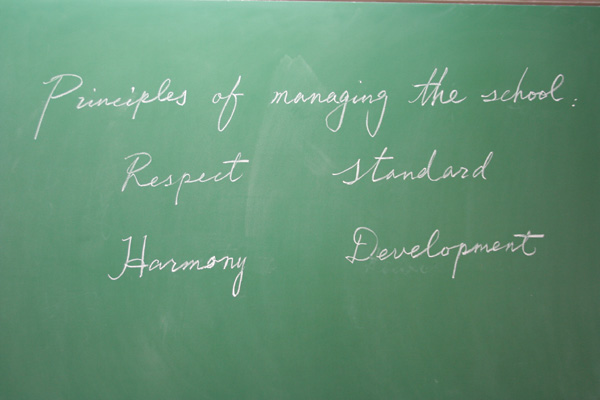 Principles of managing the school:
Respect Standard
Harmony Development